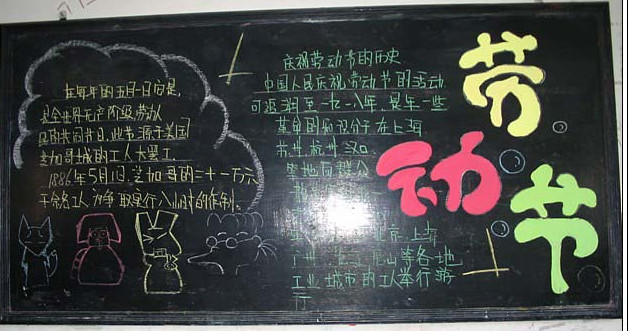 在每年的五月一日它是,
是全世界无产阶级劳动人
民的共同节日,此节源于美国
芝加哥城的工人大罢工.
1886年5月1日,芝加哥的二十一万六
千余名工人为争取是行八小时的作制。
庆祝劳动节的历史
中国人民庆祝劳动节的活动
可追溯至一九一八年,是年一些
革命知识分子在上海
苏州杭州汉口
等地向群众
北京 上海
广州 山等各地
工业城市的工人举行游
行
劳
动
节